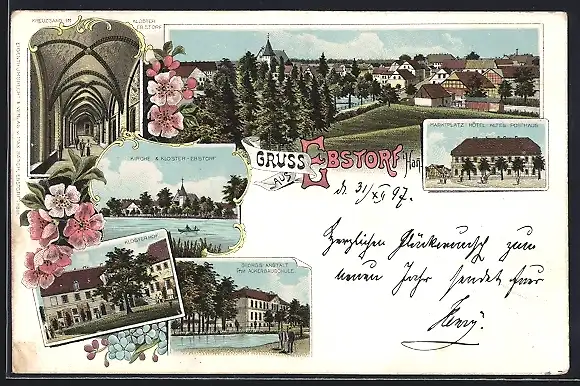 KREUZGANG IM KLOSTER EBSTORF
GRUSS AUS EBSTORF i/Han.
MARKTPLATZ: HOTEL ALTES POSTHAUS
KIRCHE & KLOSTER-EBSTORF
KLOSTERHOF
GEORGS-ANSTALT
ACKERBAUSCHULE.
d. 31/XII 97.
Herzlichen Glückwunsch zum
neuen Jahr sendet